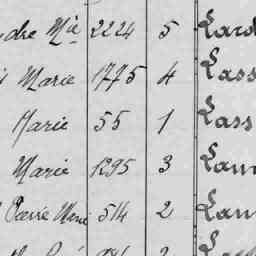 dre Mie 2224 5 Lard
Marie 1775 4 Lass
Marie 55 1 Lass
Marie 1295 3 Lam
Pierre Marie 514 2 Lam